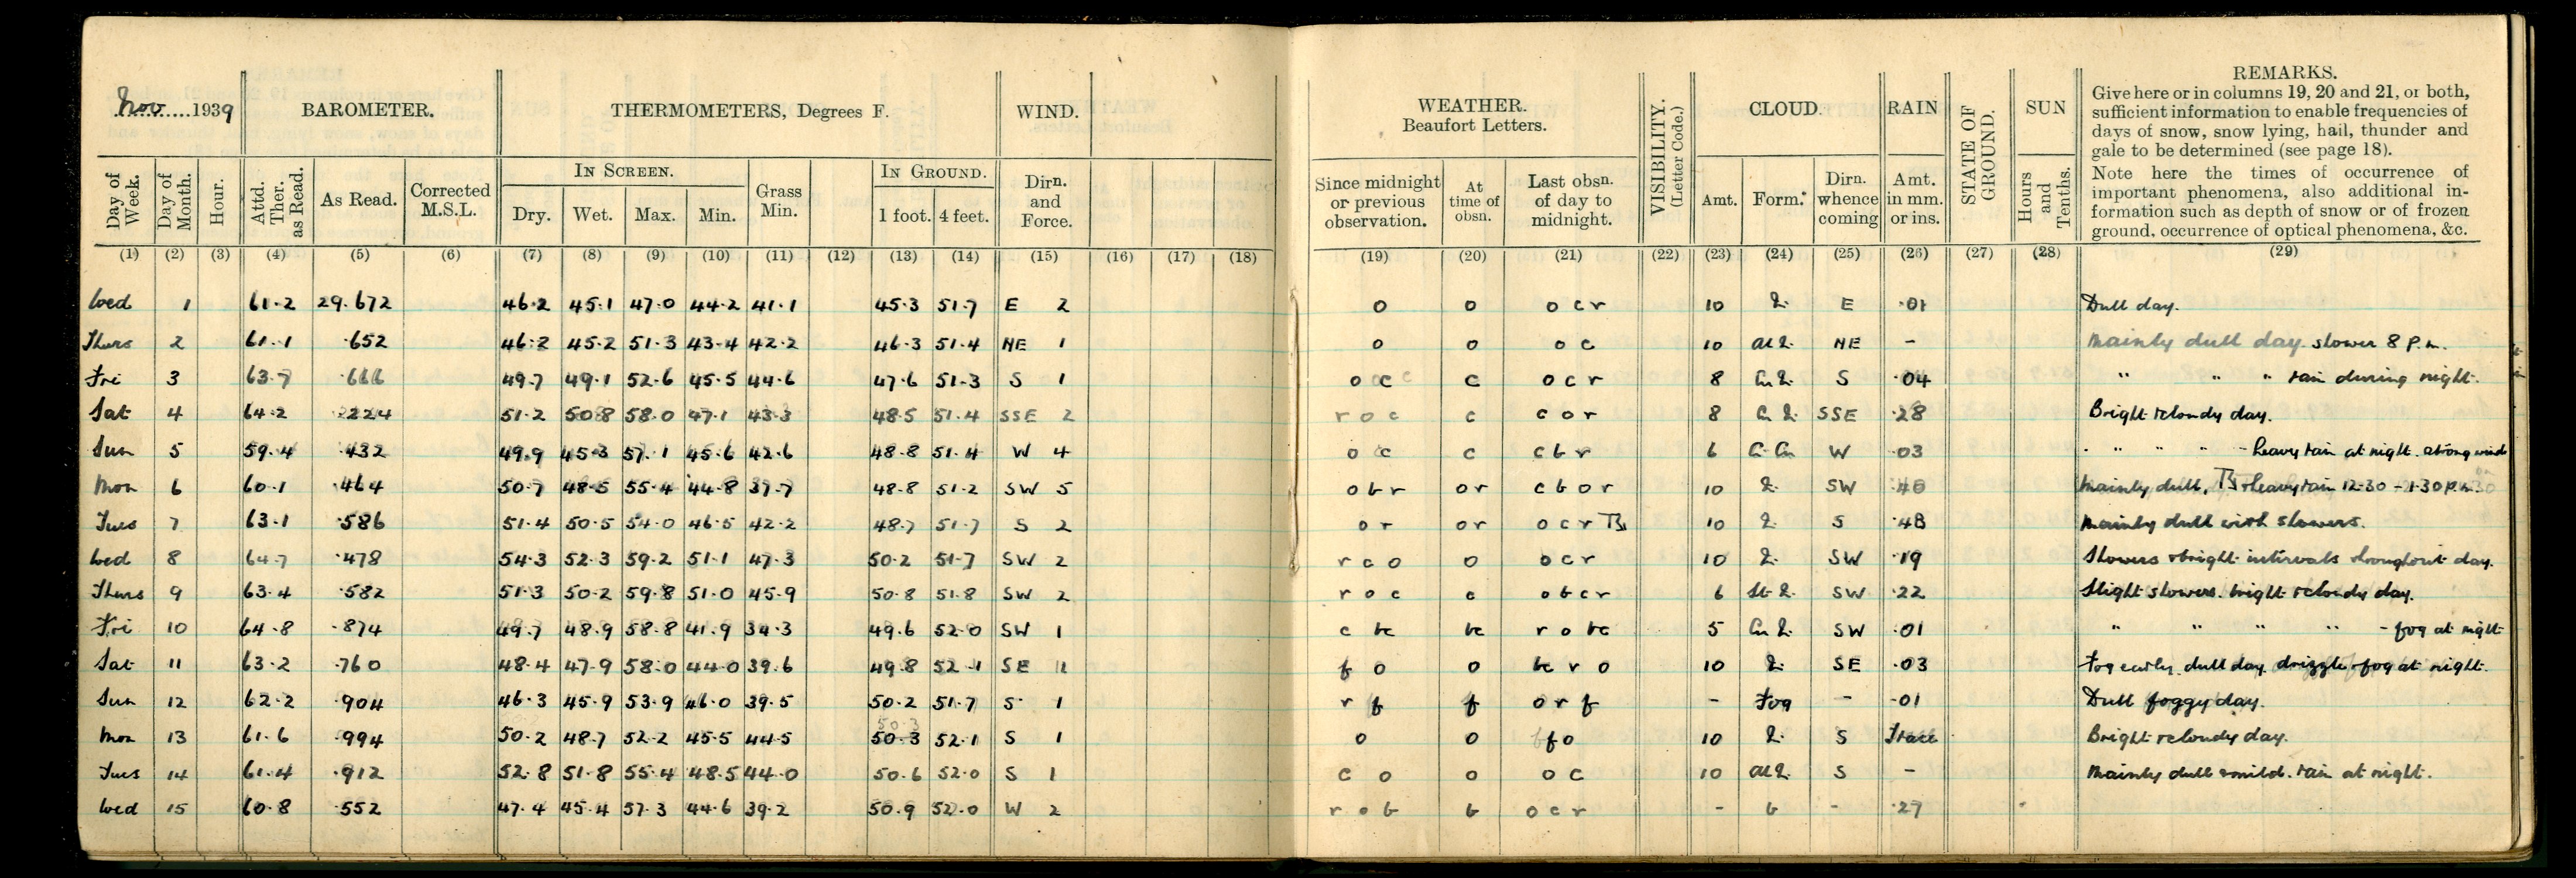 Nov 1939 BAROMETER. THERMOMETERS, Degrees F. WIND. WEATHER. Beaufort Letters. VISIBILITY. (Letter Code.) CLOUD. RAIN STATE OF GROUND. SUN REMARKS.
Give here or in columns 19, 20 and 21, or both,
sufficient information to enable frequencies of
days of snow, snow lying, hail, thunder and
gale to be determined (see page 18).
Note here the times of occurrence of
important phenomena, also additional in-
formation such as depth of snow or of frozen
ground, occurrence of optical phenomena, &c.
Day of Week. Day of Month. Hour. Attd. Ther. as Read. As Read. Corrected M.S.L. IN SCREEN. Dry. Wet. Max. Min. Grass Min. IN GROUND. 1 foot. 4 feet. Dirn. and Force. Since midnight or previous observation. At time of obsn. Last obsn. of day to midnight. Amt. Form. Dirn. whence coming Amt. in mm. or ins. Hours and Tenths.
(1) (2) (3) (4) (5) (6) (7) (8) (9) (10) (11) (12) (13) (14) (15) (16) (17) (18) (19) (20) (21) (22) (23) (24) (25) (26) (27) (28) (29)
Wed 1 61.2 29.672 46.2 45.1 47.0 44.2 41.1 45.3 51.7 E 2 o o o c r 10 E .01 Dull day.
Thurs 2 61.1 .652 46.2 45.2 51.3 43.4 42.2 46.3 51.4 NE 1 o o o c 10 NE - Mainly dull day. shower 8 P.m.
Fri 3 63.7 .666 49.7 49.1 52.6 45.5 44.6 47.6 51.3 S 1 o c c o c r 8 S .04 " " " rain during night.
Sat 4 64.2 .224 51.2 50.8 58.0 47.1 43.3 48.5 51.4 SSE 2 r o c c c o r 8 SSE .28 Bright & cloudy day.
Sun 5 59.4 .432 49.9 45.3 57.1 45.6 42.6 48.8 51.4 W 4 o c c c b r 6 W .03 " " " " - heavy rain at night. strong wind
Mon 6 60.1 .464 50.7 48.5 55.4 44.8 37.7 48.8 51.2 SW 5 o b r o r c b o r 10 SW .40 Mainly dull, & heavy rain 12.30 - 1.30 P.m.
Tues 7 63.1 .586 51.4 50.5 54.0 46.5 42.2 48.7 51.7 S 2 o r o r o c r 10 S .48 Mainly dull with showers.
Wed 8 64.7 .478 54.3 52.3 59.2 51.1 47.3 50.2 51.7 SW 2 r c o o o c r 10 SW .19 Showers & bright intervals throughout day.
Thurs 9 63.4 .582 51.3 50.2 59.8 51.0 45.9 50.8 51.8 SW 2 r o c c o b c r 6 SW .22 Slight showers. bright & cloudy day.
Fri 10 64.8 .874 49.7 48.9 58.8 41.9 34.3 49.6 52.0 SW 1 c bc bc r o bc 5 SW .01 " " " " - fog at night
Sat 11 63.2 .760 48.4 47.9 58.0 44.0 39.6 49.8 52.1 SE 1 f o o bc r o 10 SE .03 Fog early. dull day. drizzle & fog at night.
Sun 12 62.2 .904 46.3 45.9 53.9 46.0 39.5 50.2 51.7 S 1 r f f o r f - Fog - .01 Dull foggy day.
Mon 13 61.6 .994 50.2 48.7 52.2 45.5 44.5 50.3 52.1 S 1 o o f o 10 S Trace Bright & cloudy day.
Tues 14 61.4 .912 52.8 51.8 55.4 48.5 44.0 50.6 52.0 S 1 c o o o c 10 S - Mainly dull & mild. rain at night.
Wed 15 60.8 .552 47.4 45.4 57.3 44.6 39.2 50.9 52.0 W 2 r o b b o c r - b - .27